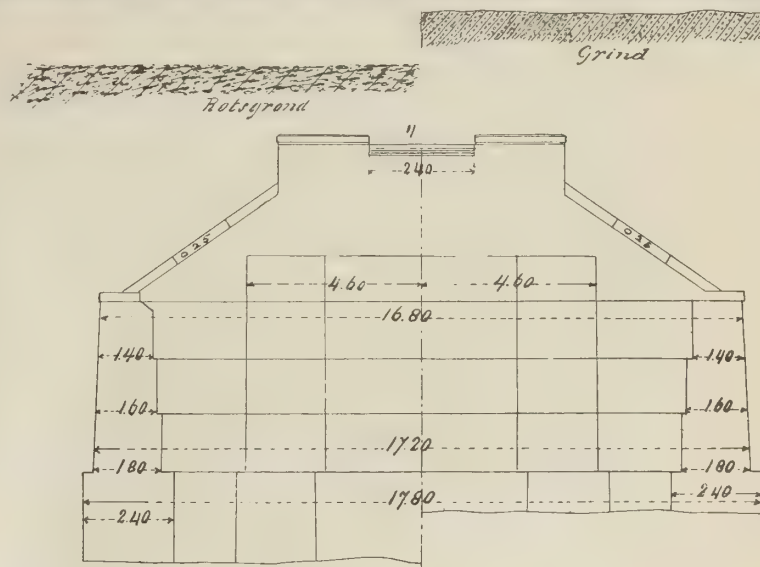 Grind
Rotsgrond
"
2.40
0.25
0.26
4.60 4.60
16.80
1.40 1.40
1.60 1.60
17.20
1.80 1.80
17.80 2.40
2.40